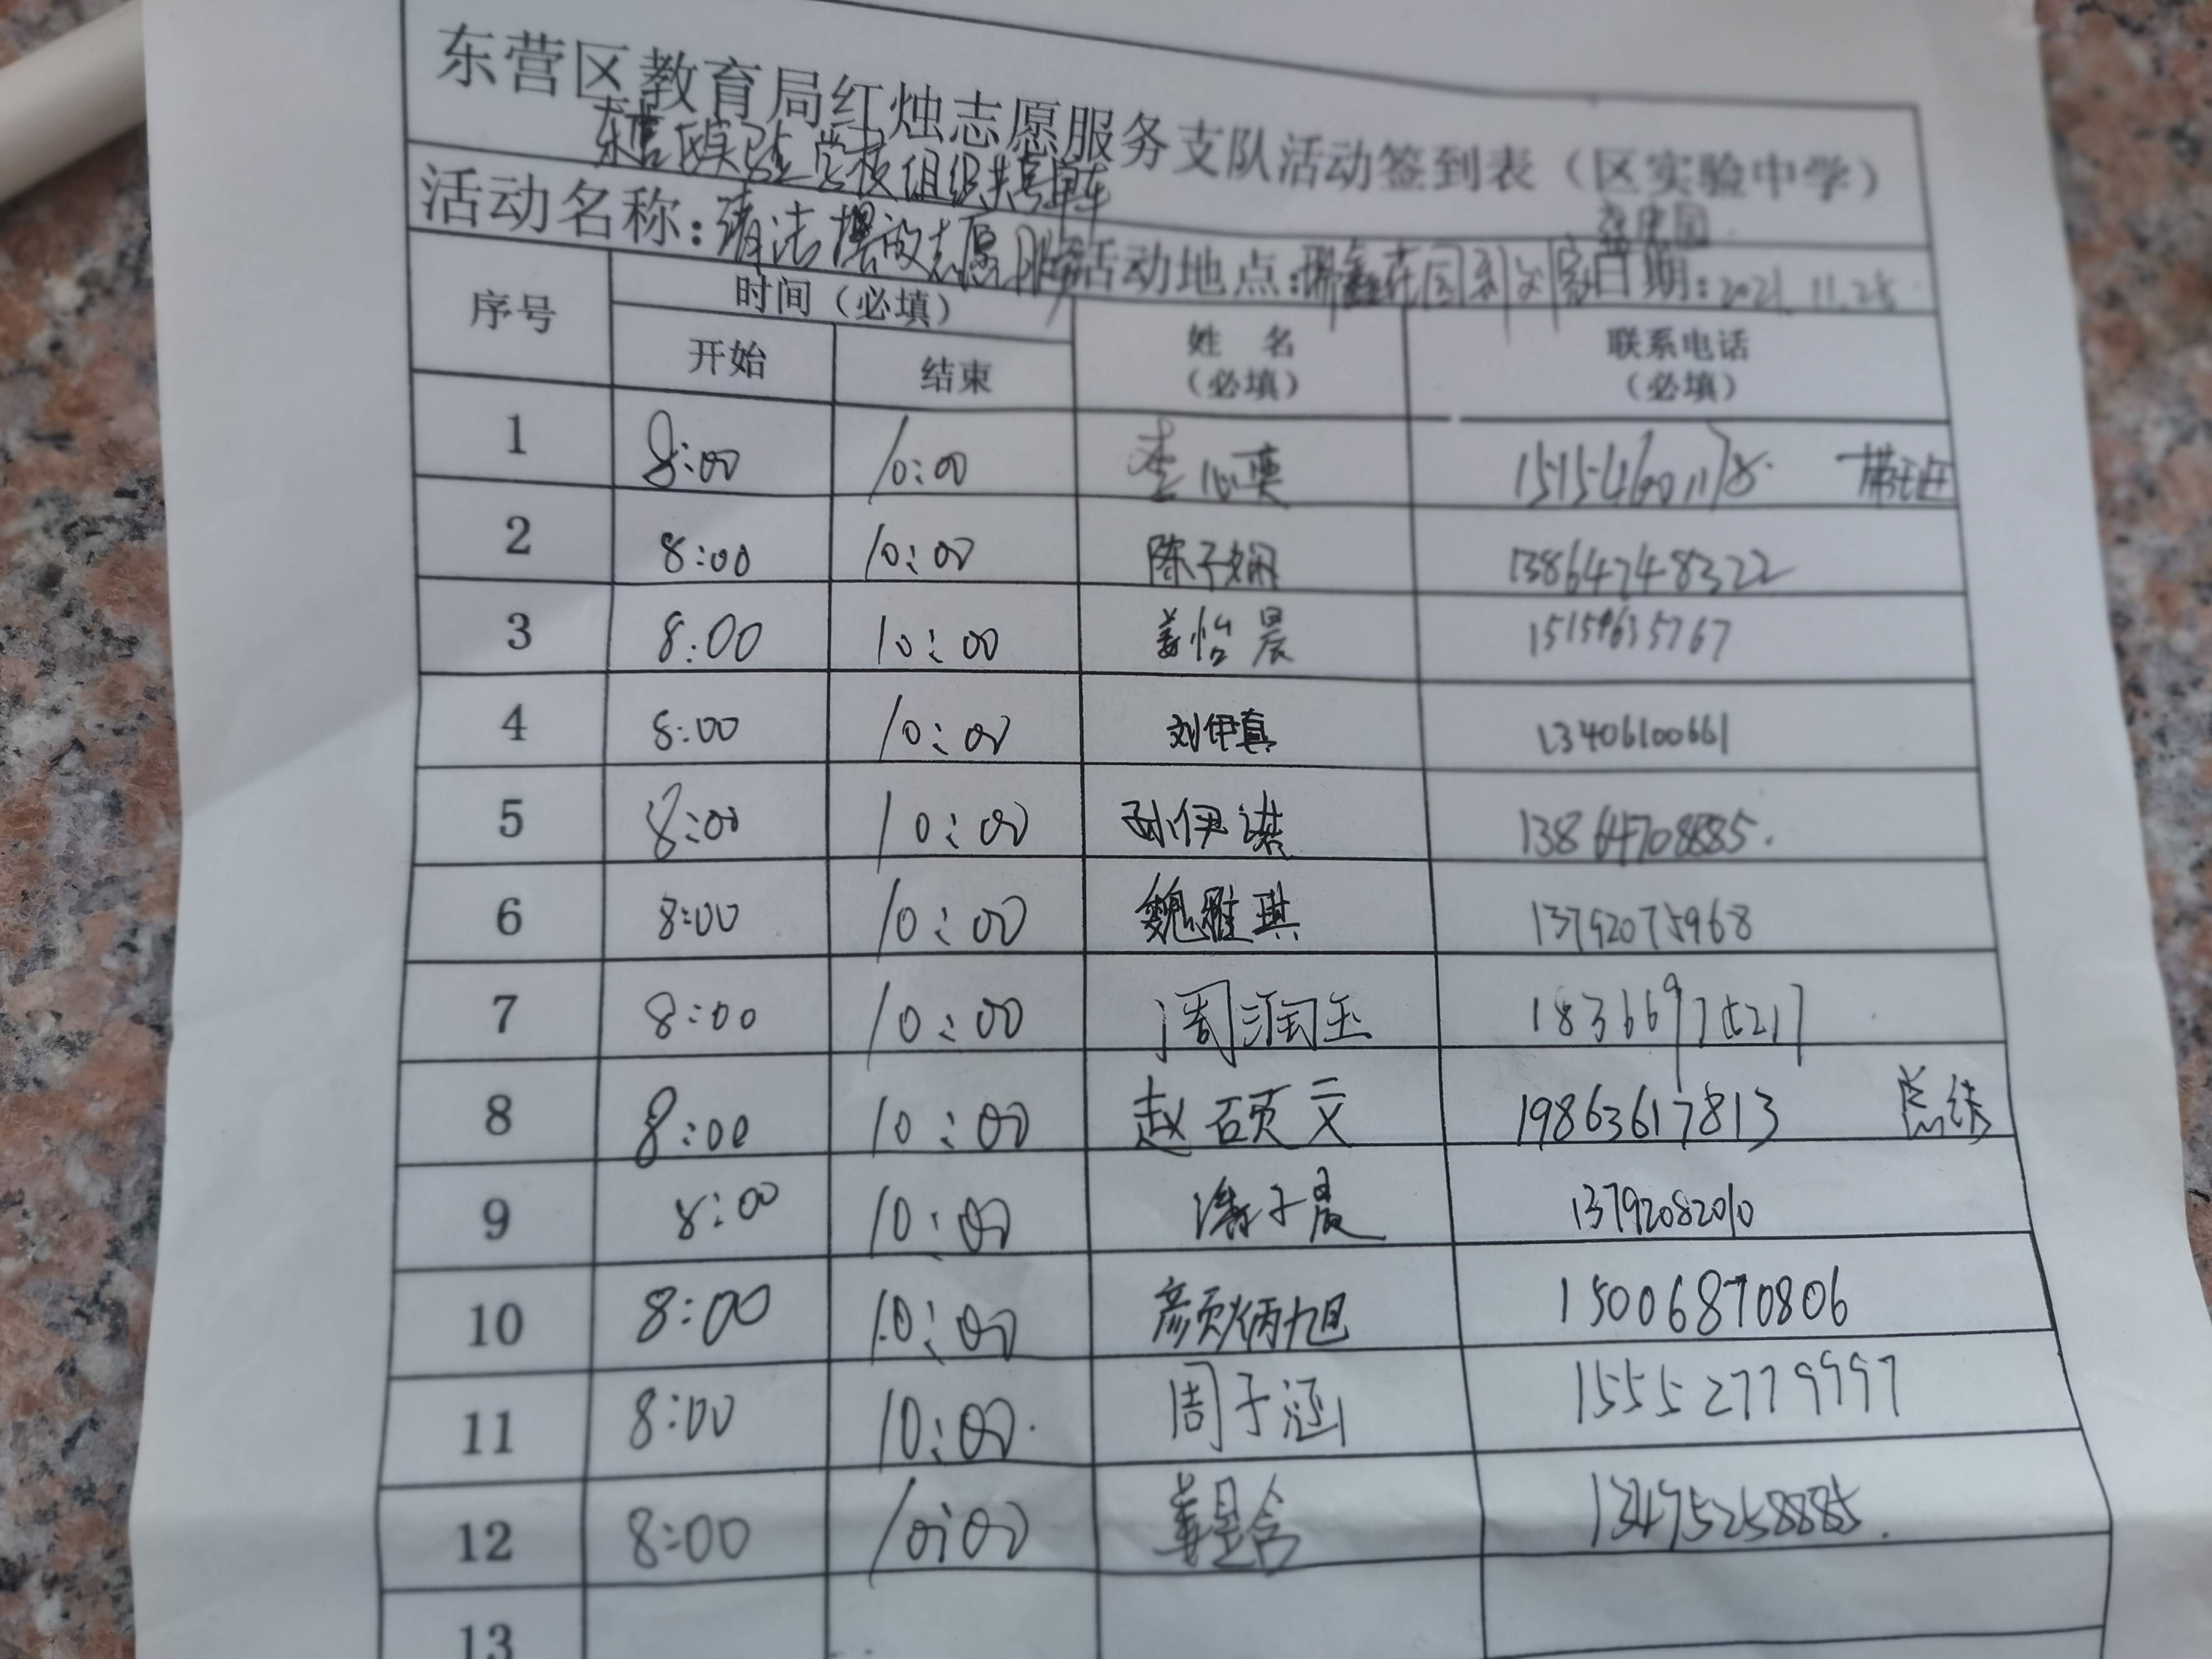 东营区教育局红烛志愿服务支队活动签到表（区实验中学）
东营区实验学校组织共享单车
活动名称：清洁摆放志愿服务 活动地点： 日期：2021.11.25
序号 时间（必填） 姓 名（必填） 联系电话（必填）
开始 结束
1 8:00 10:00 李心 带班
2 8:00 10:00 陈子娴 13864748322
3 8:00 10:00 姜怡晨
4 8:00 10:00 刘伊真 13406100661
5 8:00 10:00 孙伊诺 13864708885.
6 8:00 10:00 魏雅琪 13792075968
7 8:00 10:00 周润玉 18366975217
8 8:00 10:00 赵硕文 19863617813 总结
9 8:00 10:00 子晨 13792082010
10 8:00 10:00 颜炳旭 15006870806
11 8:00 10:00. 周子涵 15552779997
12 8:00 10:00 姜昱含 13475258885.
13